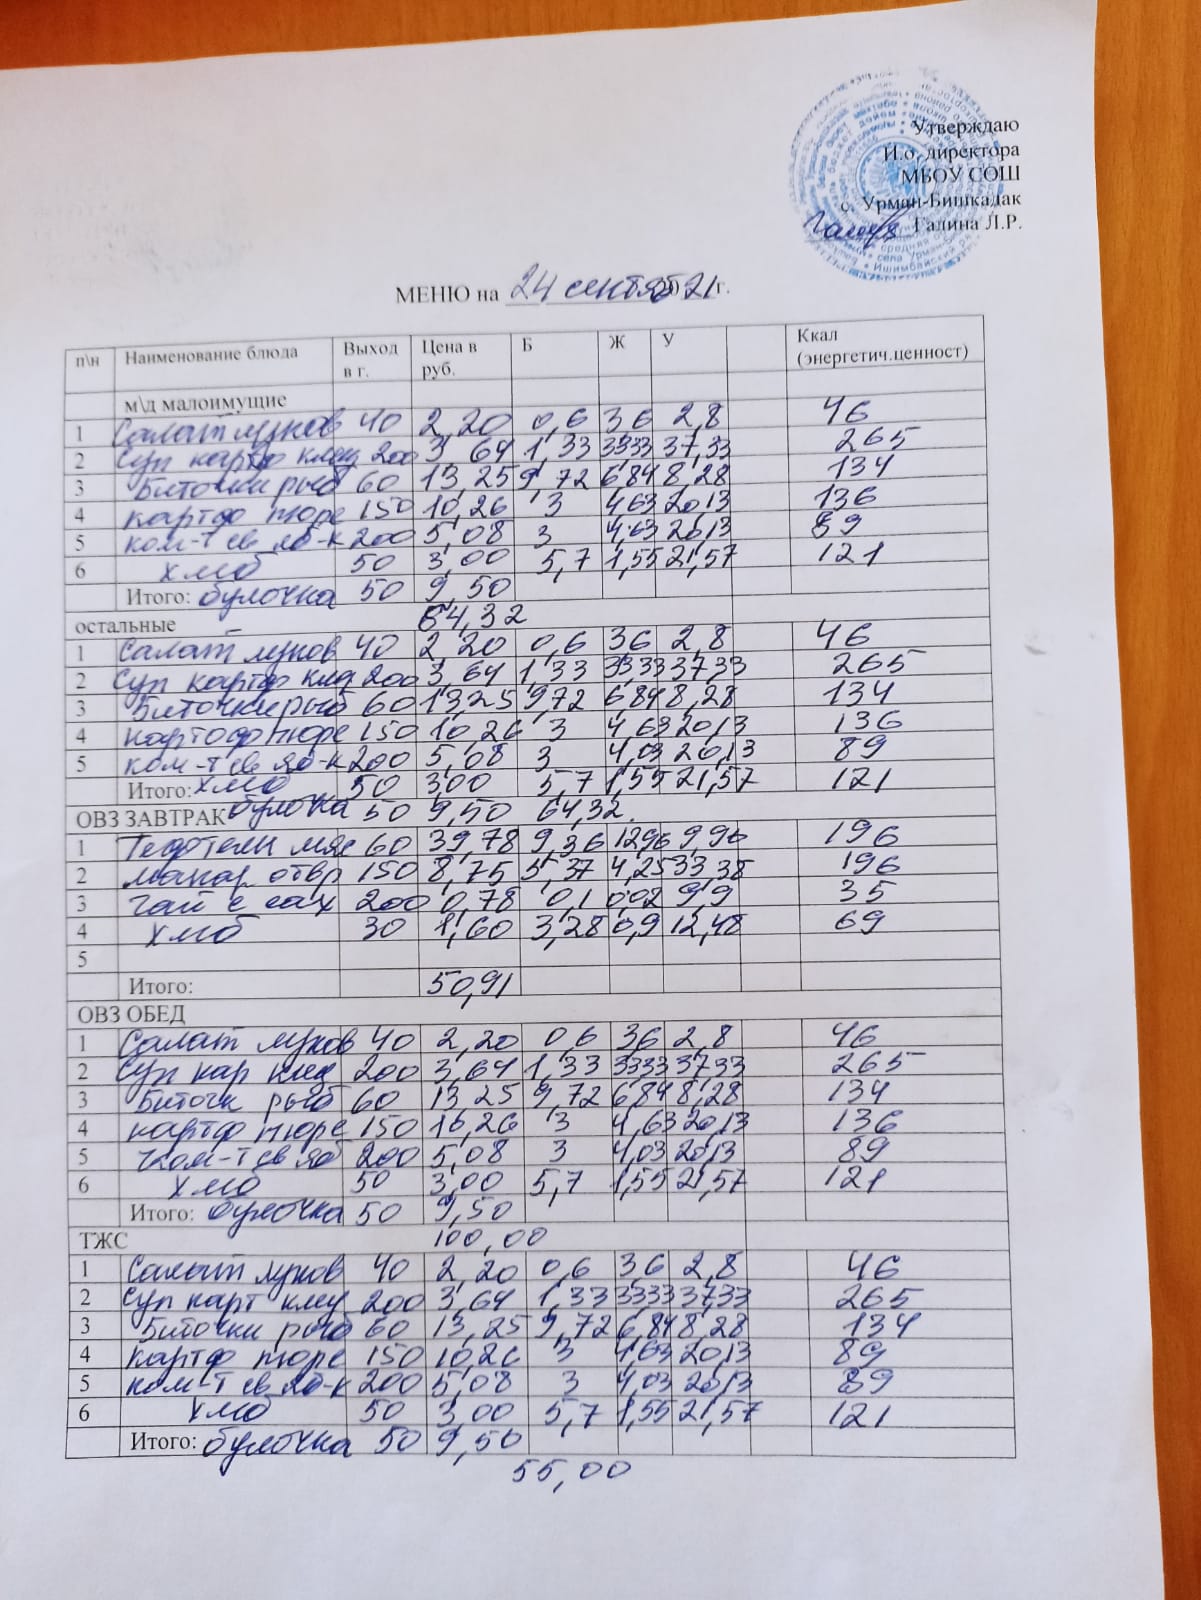 Утверждаю
И.о. директора
МБОУ СОШ
с. Урман-Бишкадак
Галина Л.Р.
МЕНЮ на 24 сентяб 2021 г.
п\н Наименование блюда Выход в г. Цена в руб. Б Ж У Ккал (энергетич.ценност)
м\д малоимущие
1 Салат луков 40 2,20 0,6 36 2,8 46
2 Суп картф клец 200 3,64 1,33 3333 37,33 265
3 Биточки рыб 60 13,25 9,72 6,84 8,28 134
4 картоф пюре 150 10,26 3 4,63 20,13 136
5 ком-т св яб-к 200 5,08 3 4,63 20,13 89
6 хмб 50 3,00 5,7 1,55 21,57 121
Итого: булочка 50 9,50
остальные 64,32
1 Салат луков 40 2,20 0,6 36 2,8 46
2 Суп картф клец 200 3,64 1,33 3333 3733 265
3 Биточки рыб 60 13,25 9,72 6,84 8,28 134
4 картоф пюре 150 10,26 3 4,63 20,13 136
5 ком-т св яб-к 200 5,08 3 4,03 20,13 89
Итого: хмб 50 3,00 5,7 1,55 21,57 121
ОВЗ ЗАВТРАК булочка 50 9,50 64,32.
1 Тефтели мяс 60 39,78 9,36 12,96 9,96 196
2 макар отвр 150 8,75 5,37 4,25 33,38 196
3 Чай с сах 200 0,78 0,1 0,02 9,9 35
4 хмб 30 1,60 3,28 0,9 12,48 69
5
Итого: 50,91
ОВЗ ОБЕД
1 Салат луков 40 2,20 0,6 3,6 2,8 46
2 Суп кар клец 200 3,64 1,33 3333 3733 265
3 Биточк рыб 60 13,25 9,72 6,84 8,28 134
4 картф пюре 150 10,26 3 4,63 20,13 136
5 ком-т св яб 200 5,08 3 4,03 20,13 89
6 хмб 50 3,00 5,7 1,55 21,57 121
Итого: булочка 50 9,50
ТЖС 100,00
1 Салат луков 40 2,20 0,6 3,6 2,8 46
2 Суп карт клец 200 3,64 1,33 3333 3733 265
3 Биточки рыб 60 13,25 9,72 6,84 8,28 134
4 картф пюре 150 10,26 3 4,63 20,13 89
5 ком-т св яб-к 200 5,08 3 4,03 20,13 89
6 хмб 50 3,00 5,7 1,55 21,57 121
Итого: булочка 50 9,50
55,00